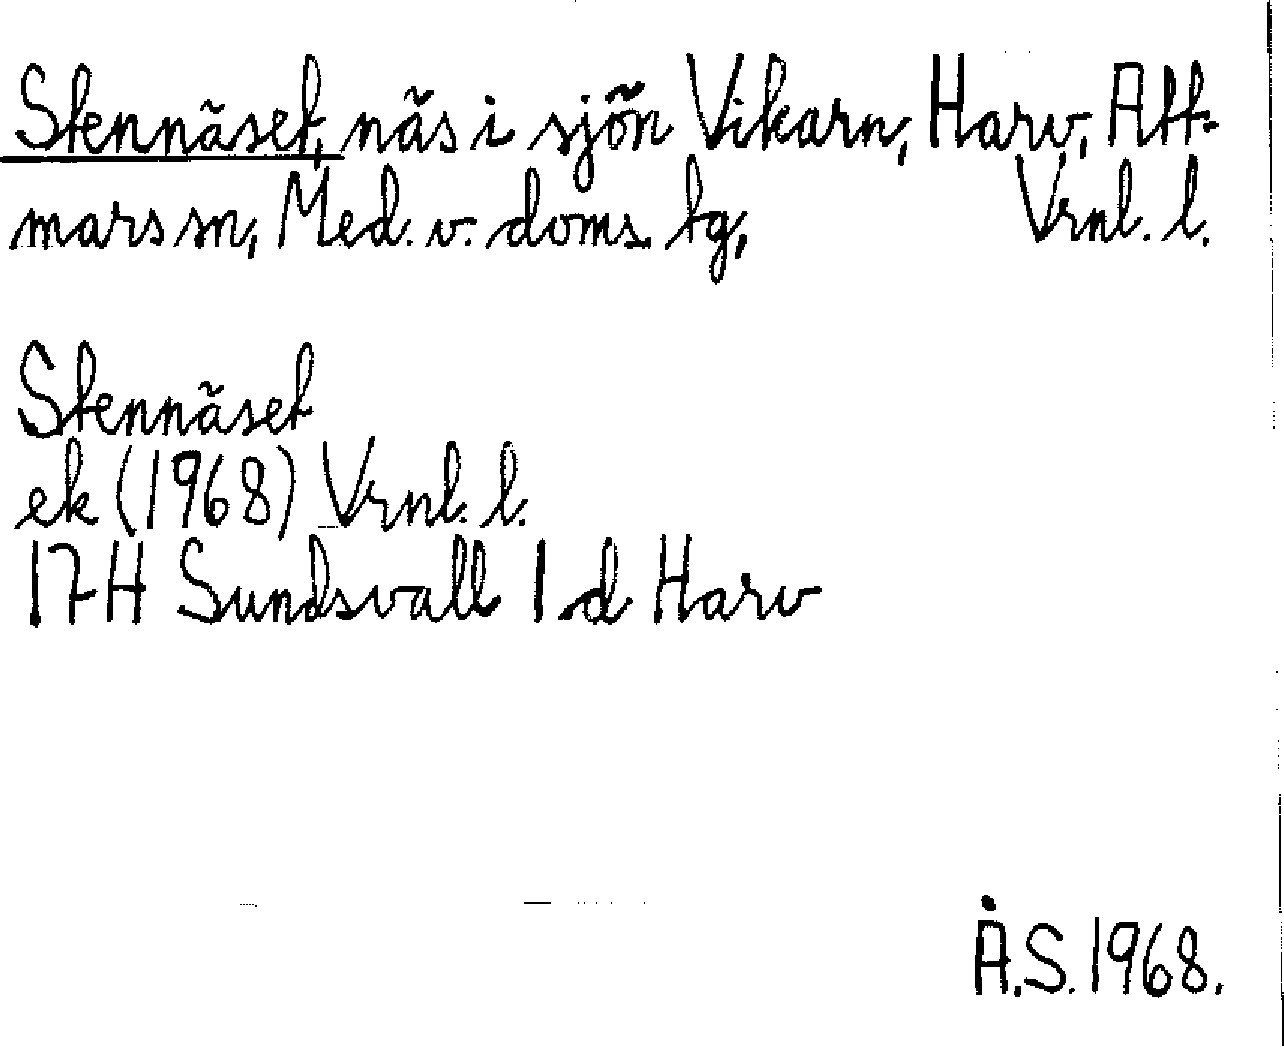 Stennäset, näs i sjön Vikarn, Harv, Att-
mars sn, Med. v. doms. tg, Vrnl. l.
Stennäset
ek (1968) Vrnl. l.
17H Sundsvall 1 d Harv
Å.S. 1968.